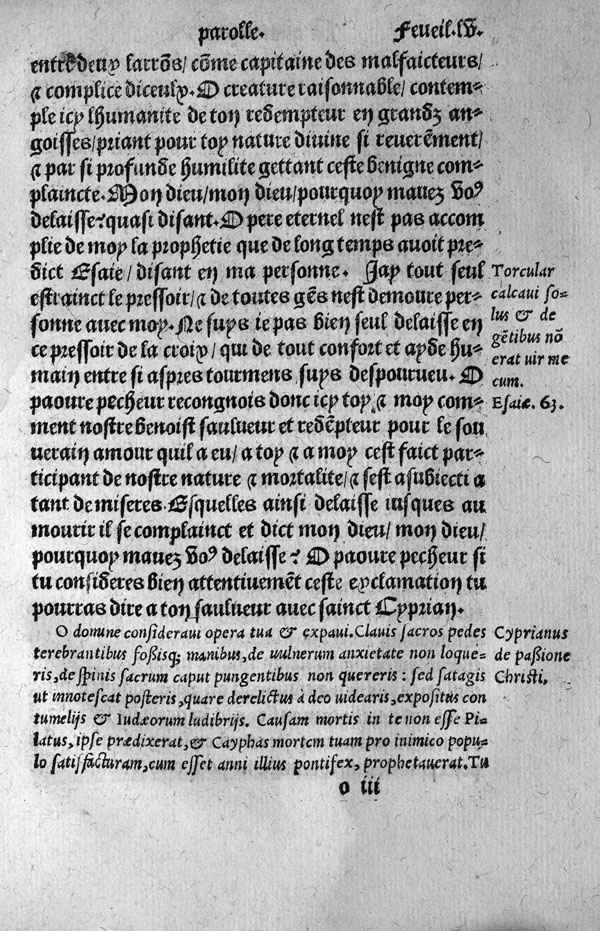 parolle. Feueil.lv.
entre deux larrõs/ cõme capitaine des malfaicteurs/
⁊ complice diceulx. O creature raisonnable/ contem-
ple icy lhumanite de ton redempteur en grandz an-
goisses/priant pour toy nature divine si reuerẽment/
⁊ par si profunde humilite gettant ceste benigne com-
plaincte. Mon dieu/mon dieu/pourquoy mauez voꝰ
delaisse? quasi disant. O pere eternel nest pas accom
plie de moy la prophetie que de long temps auoit pre-
dict Esaie/ disant en ma personne. Jay tout seul
estrainct le pressoir/ ⁊ de toutes gẽs nest demoure per-
sonne auec moy. Ne suys ie pas bien seul delaisse en
ce pressoir de la croix/ qui de tout confort et ayde hu-
main entre si aspres tourmens suys despourueu. O
paoure pecheur recongnois donc icy toy ⁊ moy com-
ment nostre benoist saulueur et redẽpteur pour le sou
uerain amour quil a eu/ a toy ⁊ a moy cest faict par-
ticipant de nostre nature ⁊ mortalite/ ⁊ sest asubiecti a
tant de miseres. Esquelles ainsi delaisse iusques au
mourir il se complainct et dict mon dieu/ mon dieu/
pourquoy mauez voꝰ delaisse? O paoure pecheur si
tu consideres bien attentiuemẽt ceste exclamation tu
pourras dire a ton saulueur auec sainct Cyprian.
Torcular
calcaui so-
lus & de
gẽtibus nõ
erat uir me
cum.
Esaiæ. 63.
O domine consideraui opera tua & expaui. Clauis sacros pedes
terebrantibus foßisq; manibus, de uulnerum anxietate non loque-
ris, de spinis sacrum caput pungentibus non quereris: sed satagis
ut innotescat posteris, quare derelictus à deo uidearis, expositus con
tumelijs & Iudæorum ludibrijs. Causam mortis in te non esse Pi-
latus, ipse prædixerat, & Cayphas mortem tuam pro inimico popu-
lo satisfacturam, cum esset anni illius pontifex, prophetauerat. Tu
Cyprianus
de paßione
Christi.
o iii